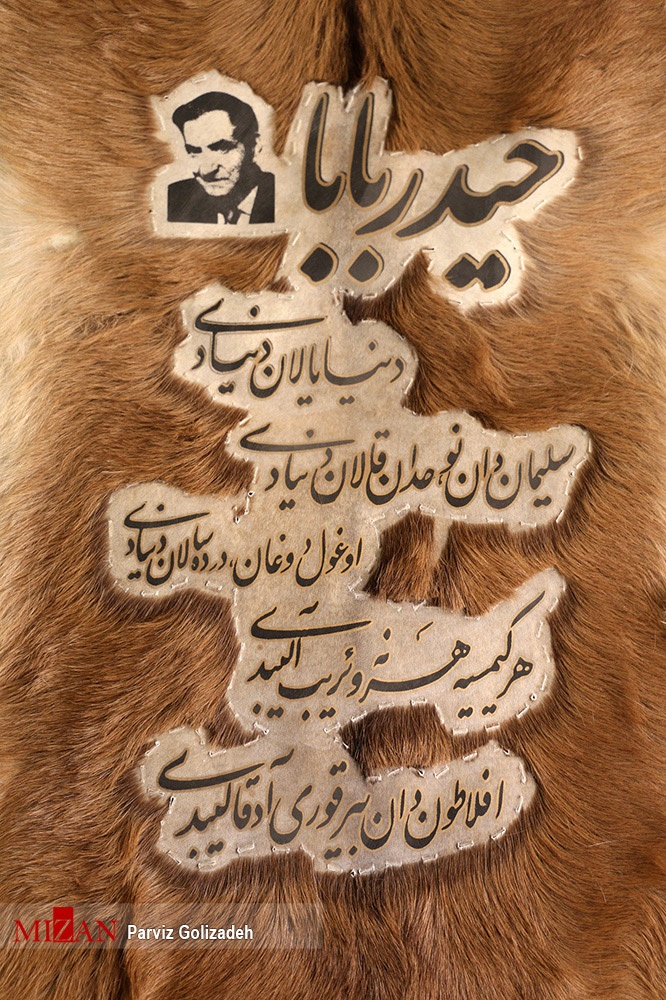 حیدربابا
دنیا یالان دنیادی
سلیمان دان نوحدان قالان دنیادی
اوغول دوغان، درده سالان دنیادی
هر کیمسیه هر نه وئریب آلیبدی
افلاطون دان بیر قوری آد قالیبدی
MIZAN Parviz Golizadeh